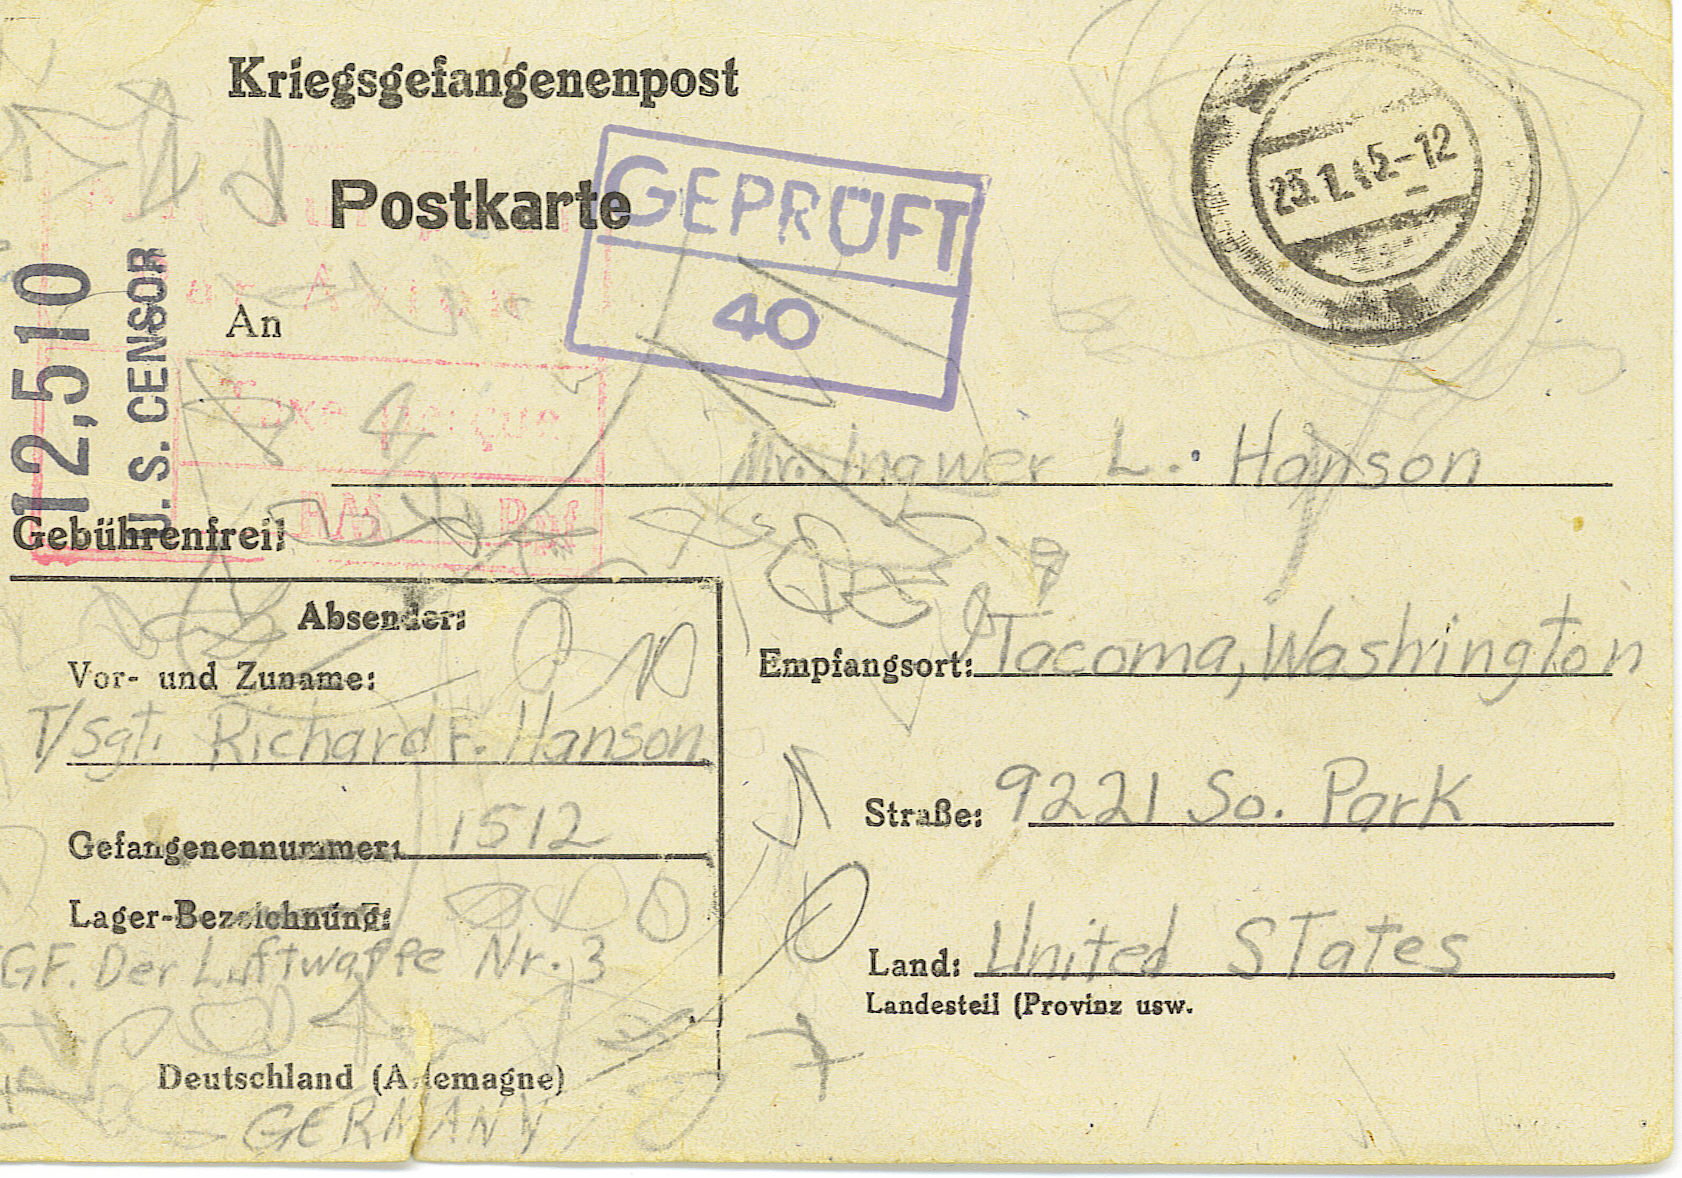 Kriegsgefangenenpost
Postkarte
GEPRÜFT
40
25.1.45.-12
12,510
U. S. CENSOR
An
Mr. Ingwer L. Hanson
Gebührenfrei!
Absender:
Vor- und Zuname:
T/Sgt. Richard F. Hanson
Gefangenennummer: 1512
Lager-Bezeichnung:
GF. Der Luftwaffe Nr. 3
Deutschland (Allemagne)
GERMANY
Empfangsort: Tacoma, Washington
Straße: 9221 So. Park
Land: United States
Landesteil (Provinz usw.